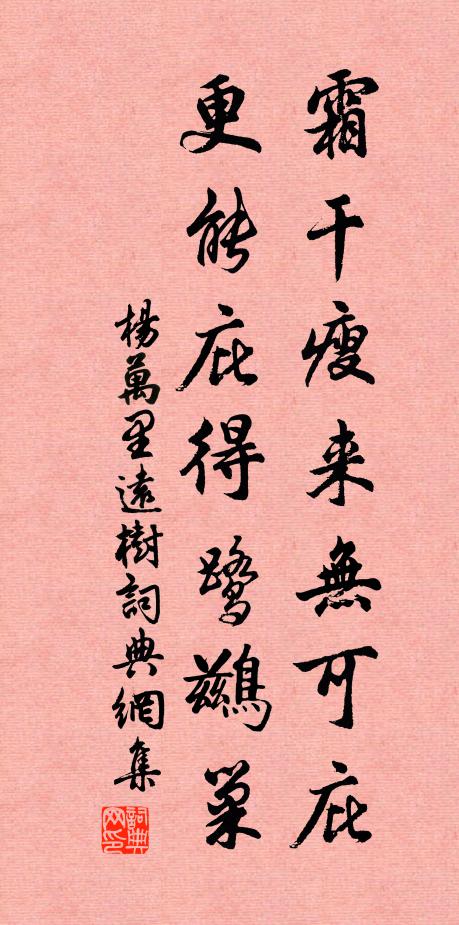 霜干瘦来無可庇
更能庇得鹭鷀巢
楊萬里遠樹詞典網集
詞典网印